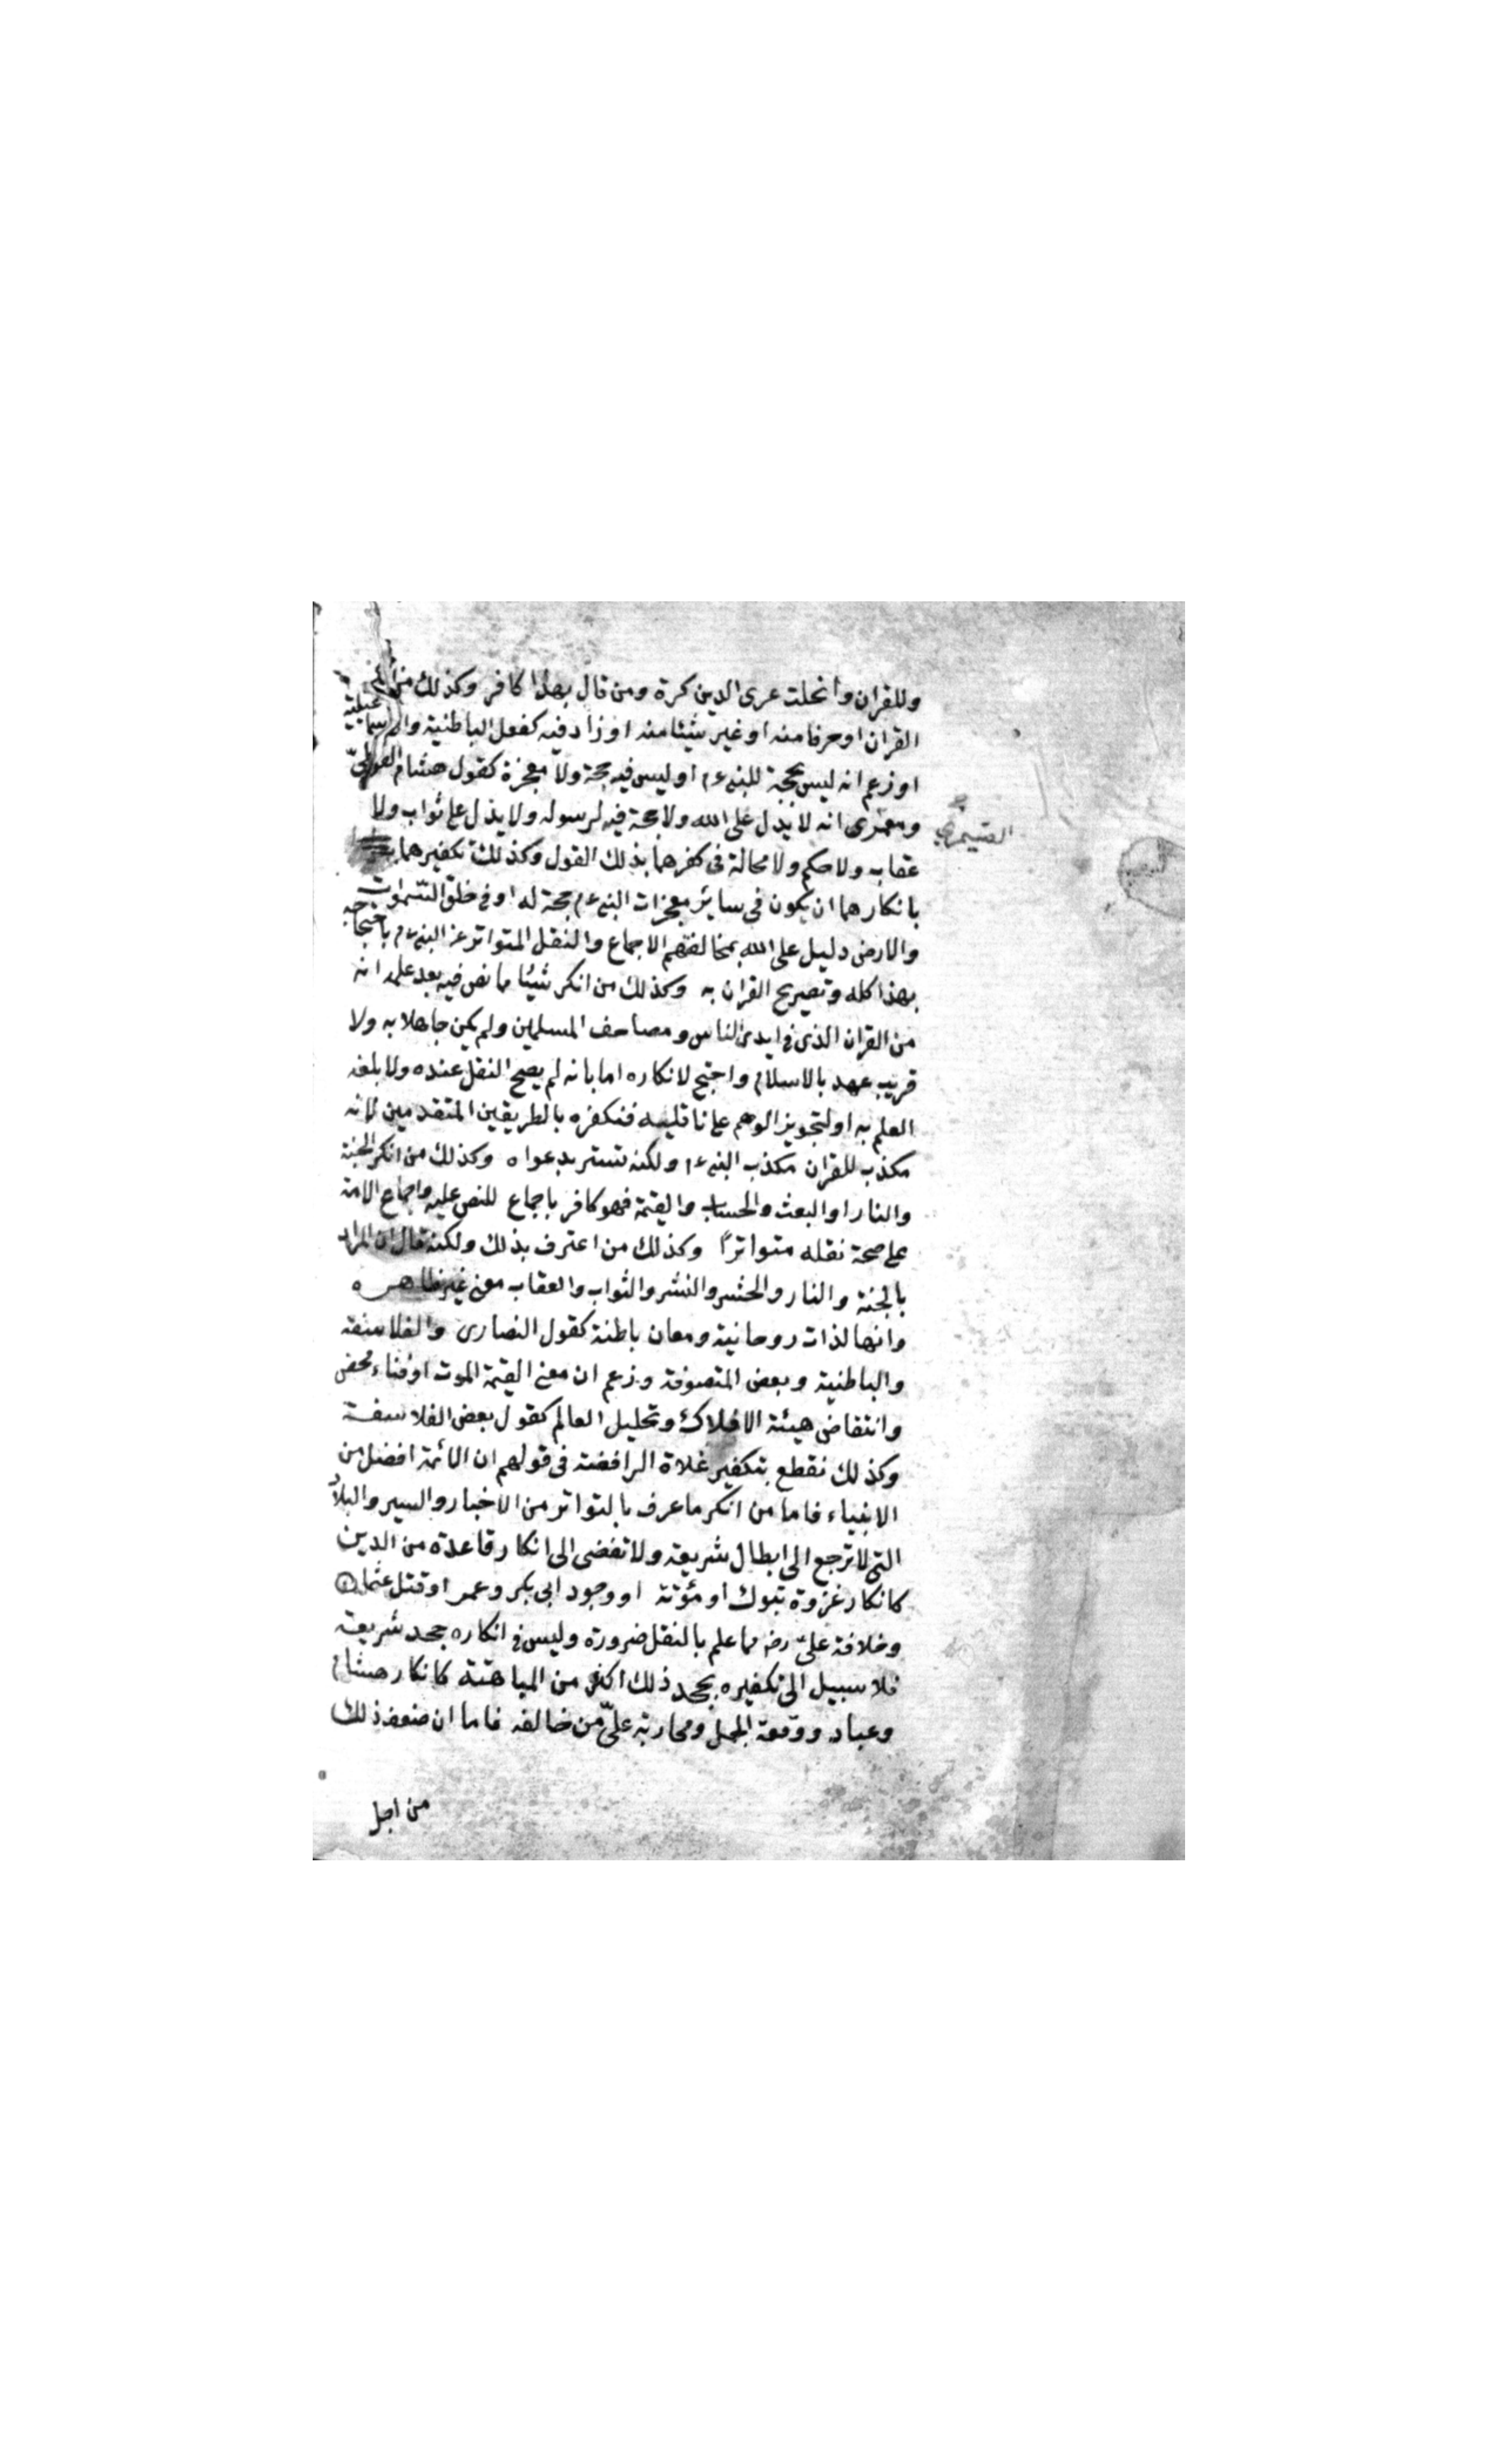 وللقران وانحلت عرى الدين كرة ومن قال بهذا كافر وكذلك من انكر
القران او حرفا منه او غير شيئا منه او زاد فيه كفعل الباطنية والاسماعيلية
او زعم انه ليس بحجة للنبى ءم او ليس فيه حجة ولا معجزة كقول هشام الفوطىّ
ومعمرى انه لا يدل على الله ولا حجة فيه لرسوله ولا يدل على ثواب ولا
عقاب ولا حكم ولا محالة فى كفرهما بذلك القول وكذلك تكفيرهما
بانكارهما ان يكون فى سائر معجزات النبى ءم حجة له او فى خلق السموات
والارض دليل على الله بمخالفتهم الاجماع والنقل المتواتر عن النبى ءم باحتجاجه
بهذا كله وتصريح القران به وكذلك من انكر شيئا مما نص فيه بعد علمه انه
من القران الذى فى ايدى الناس ومصاحف المسلمين ولم يكن جاهلا به ولا
قريب عهد بالاسلام واحتج لانكاره اما بانه لم يصح النقل عنده ولا بلغه
العلم به او لتجويز الوهم على ناقليه فنكفره بالطريقين المتقدمين لانه
مكذب للقران مكذب النبى ءم ولكنه تستر بدعواه وكذلك من انكر الجنة
والنار او البعث والحساب والقيمة فهو كافر باجماع للنص عليه واجماع الامة
على صحة نقله متواترًا وكذلك من اعترف بذلك ولكنه قال ان المراد
بالجنة والنار والحشر والنشر والثواب والعقاب معنى غير ظاهره
وانها لذات روحانية ومعان باطنة كقول النصارى والفلاسفة
والباطنية وبعض المتصوفة وزعم ان معنى القيمة الموت او فناء محض
وانتقاض هيئة الافلاك وتحليل العالم كقول بعض الفلاسفة
وكذلك نقطع بتكفير غلاة الرافضة فى قولهم ان الائمة افضل من
الانبياء فاما من انكر ما عرف بالتواتر من الاخبار والسير والبلاد
التى لا ترجع الى ابطال شريعة ولا تفضى الى انكار قاعدة من الدين
كانكار غزوة تبوك او مؤتة او وجود ابى بكر وعمر او قتل عثمان
وخلافة علىّ رضه مما علم بالنقل ضرورة وليس فى انكاره جحد شريعة
فلا سبيل الى تكفيره بجحد ذلك اكثر من المباهتة كانكار هشام
وعباد ووقعة الجمل ومحاربة علىّ من خالفه فاما ان ضعف ذلك
من اجل